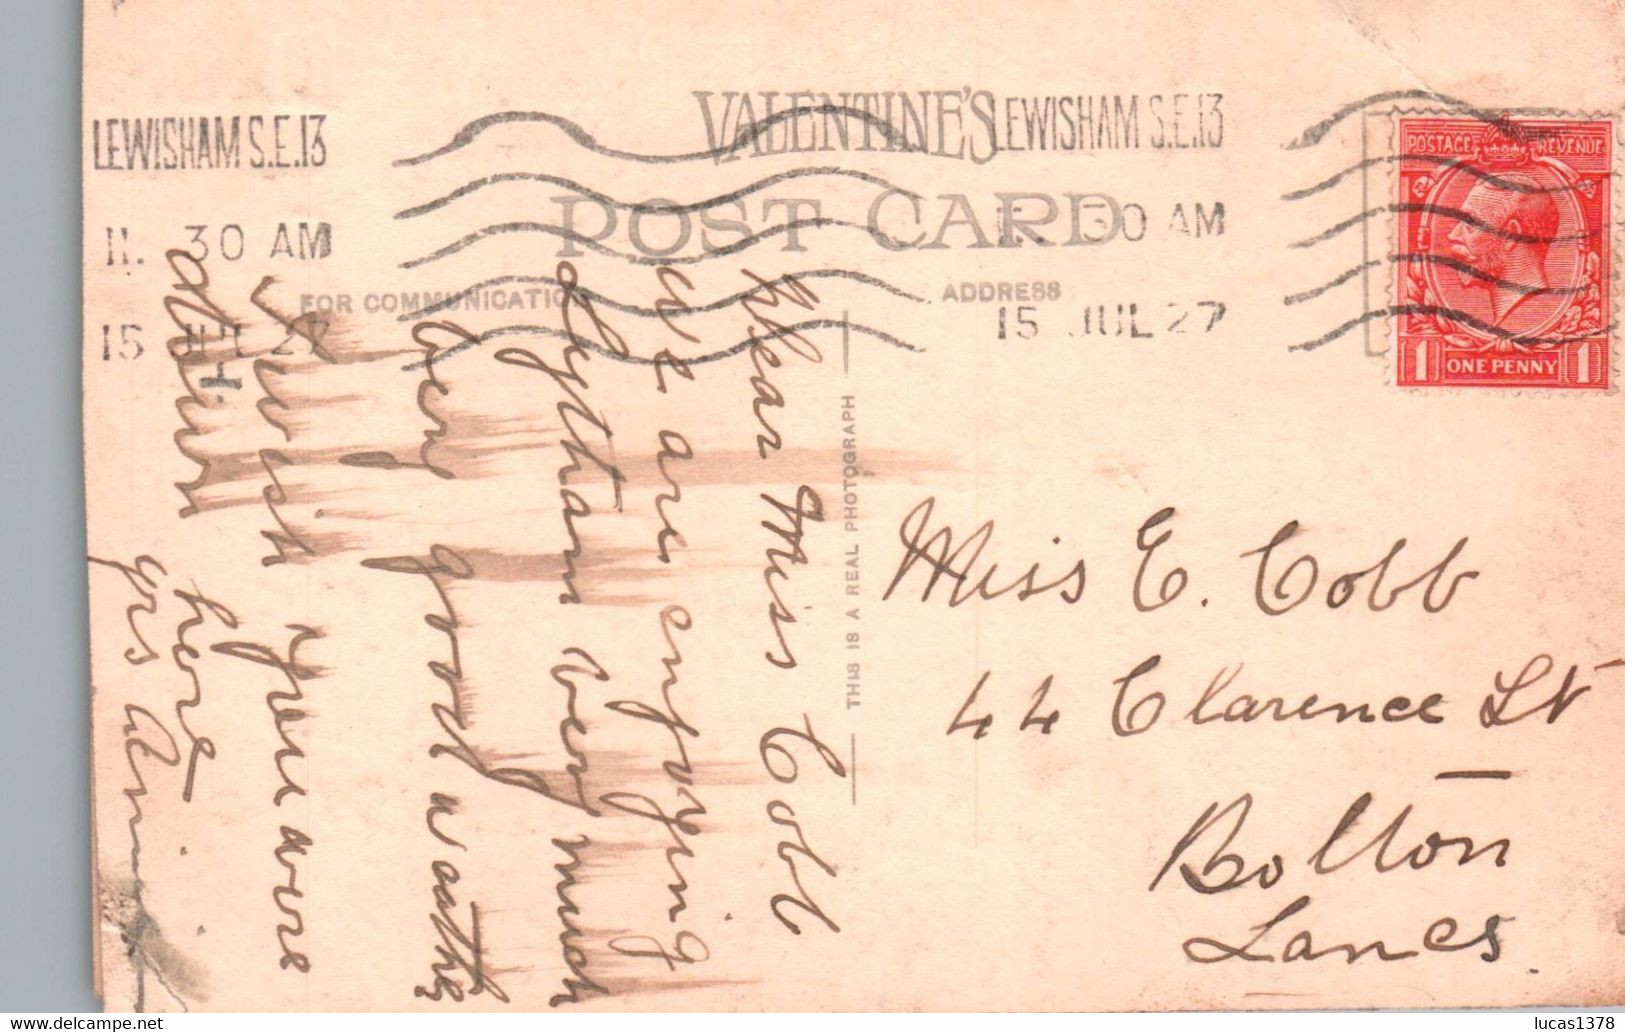 LEWISHAM S.E.13
11. 30 AM
15 JUL 27
VALENTINE'S
POST CARD
LEWISHAM S.E.13
11. 30 AM
15 JUL 27
POSTAGE REVENUE
1 ONE PENNY 1
FOR COMMUNICATION
ADDRESS
THIS IS A REAL PHOTOGRAPH
Dear Miss Cobb
We are enjoying
Lytham very much
very good weather
I wish you were
down here
yrs
Miss E. Cobb
44 Clarence St
Bolton
Lancs.
delcampe.net
lucas1378